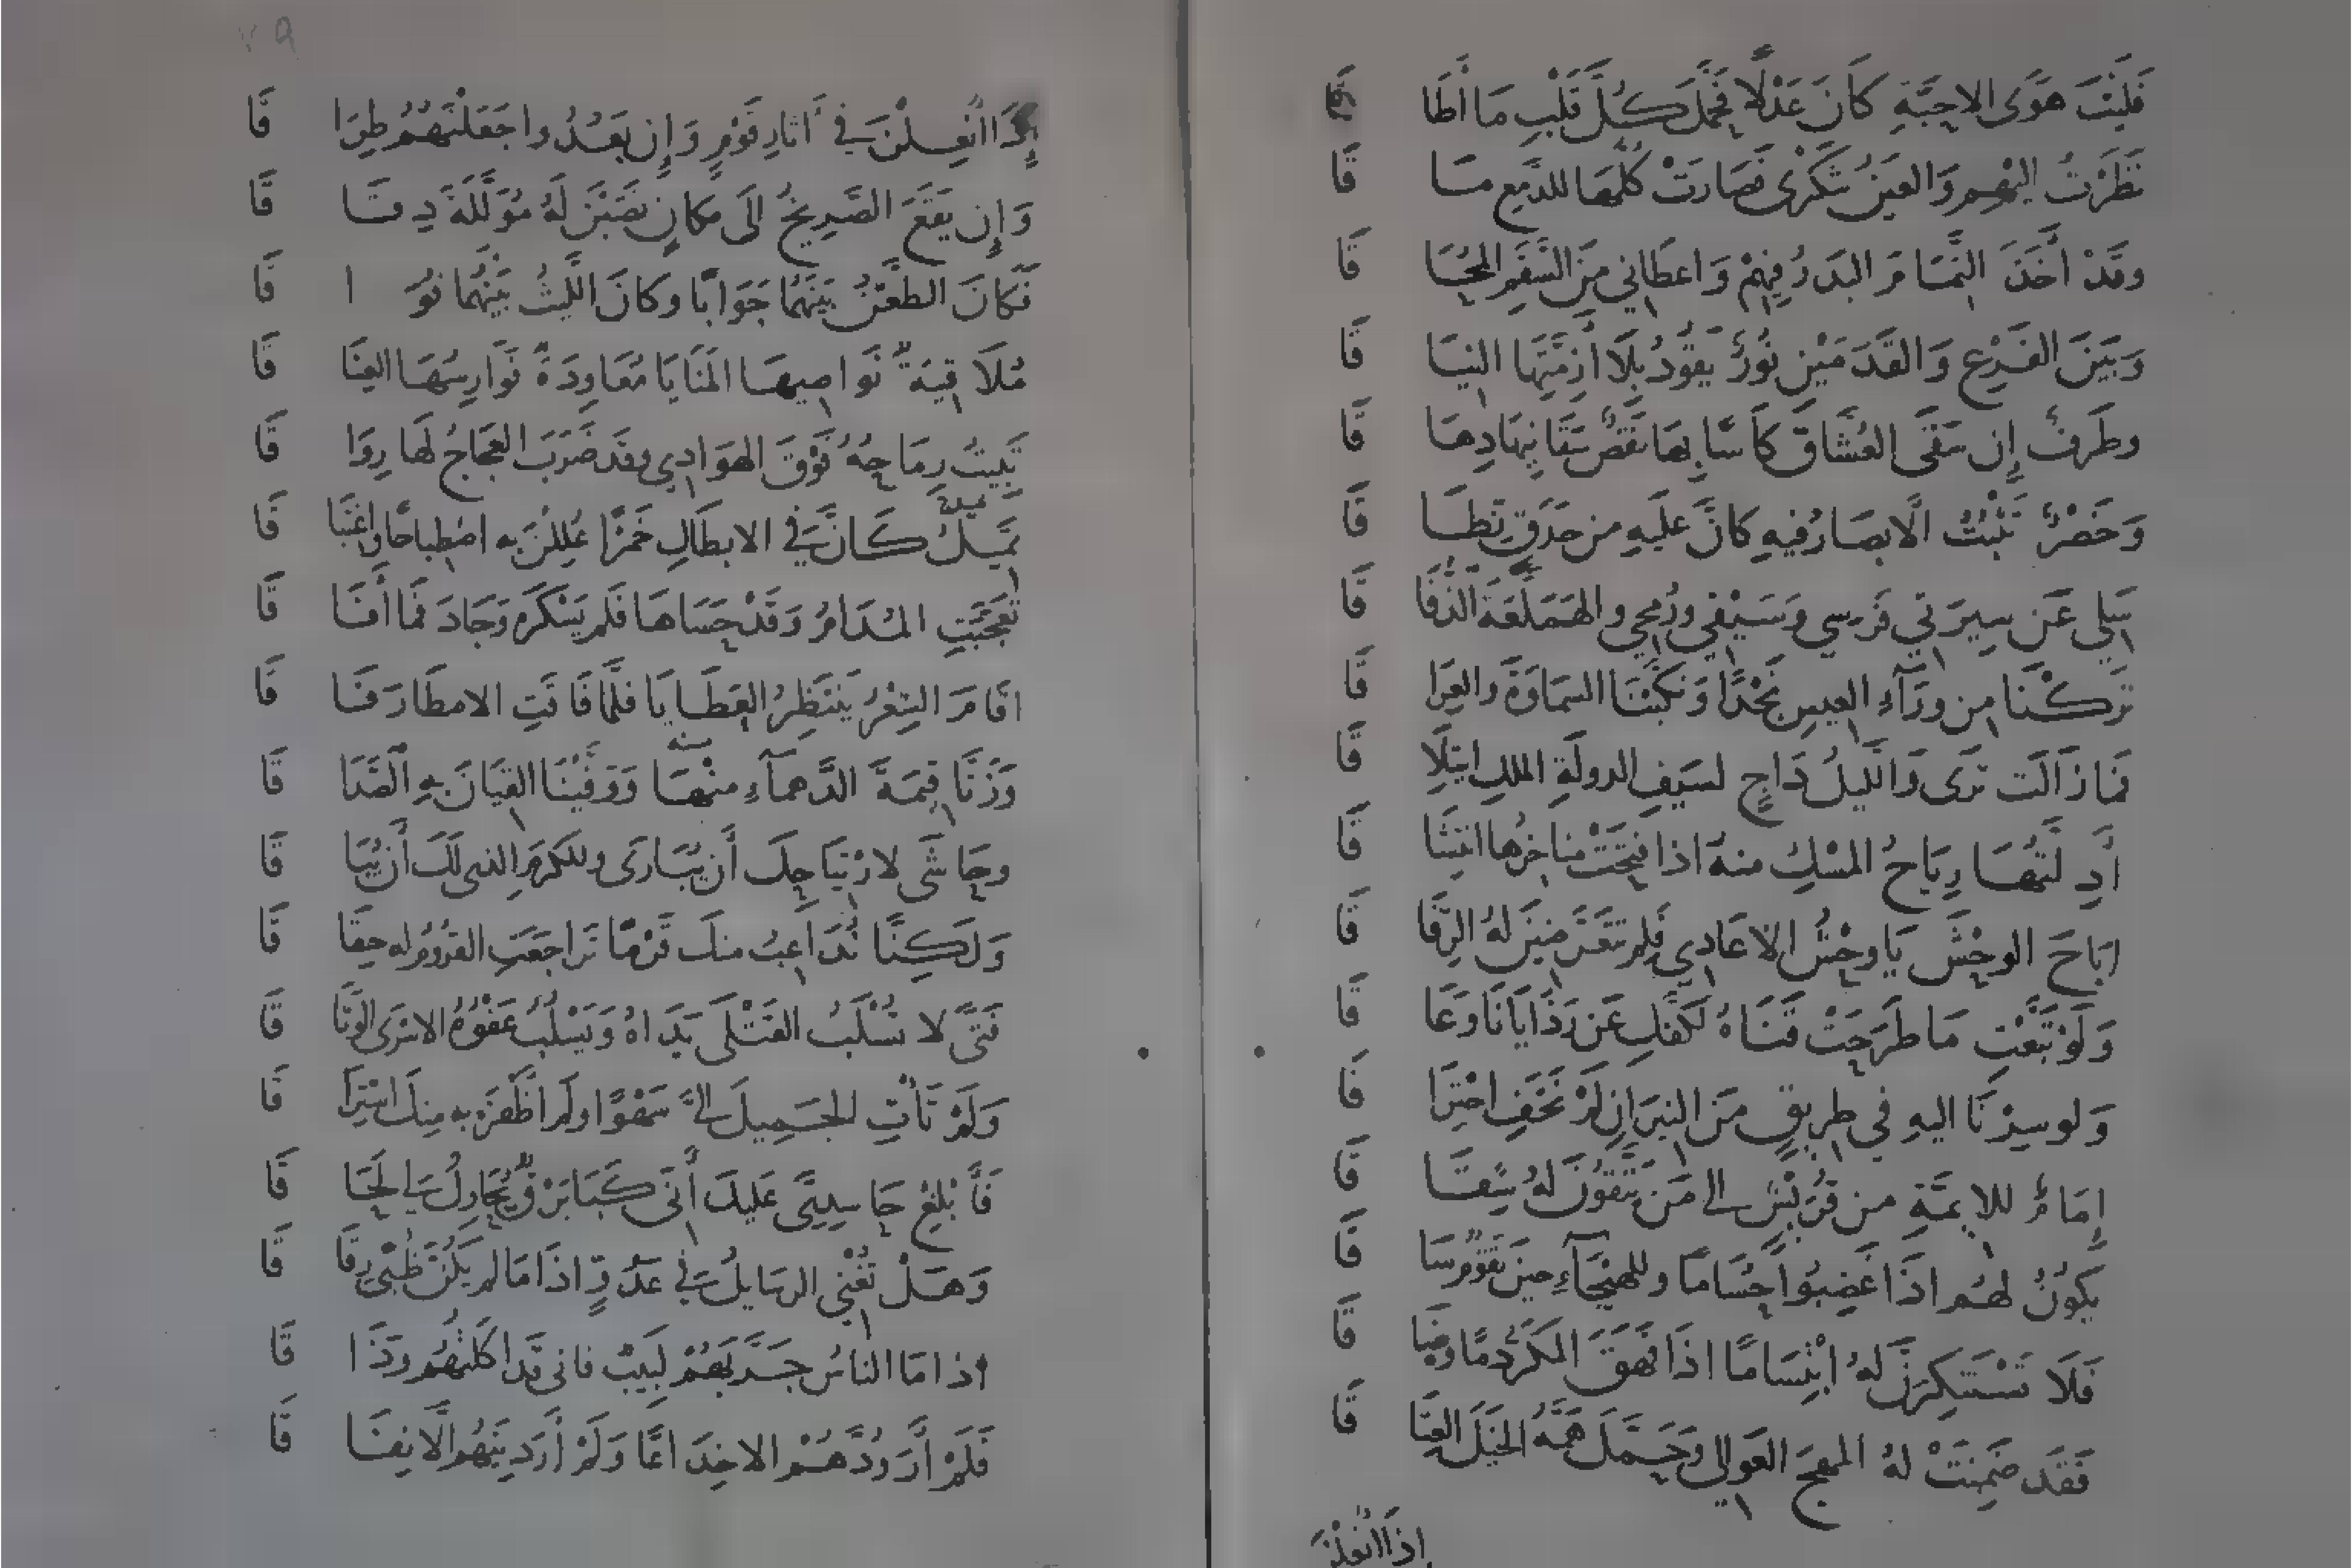 فَلَيْتَ هَوَى الاحِبَّةِ كَانَ عَدْلًا فَحَمَّلَ كُلَّ قَلْبٍ مَا أَطَا قَا
نَظَرْتُ اليْهِم وَالعَيْنُ شَكْرَى فَصَارَتْ كُلُّهَا للدَّمْعِ مَا قَا
وَقَدْ أَخَذَ التَّمَامَ البَدْرُ فِيهِمْ وَاعطَانِي مِنَ السَّقَمِ المُحَا قَا
وَبَيْنَ الفَرْعِ وَالقَدَمَيْنِ نُورٌ يَقُودُ بِلَا أَزِمَّتِهَا النِيَا قَا
وطَرفٌ إِن سَقَى العُشَّاقَ كَأسًا بِهَا نَقْصٌ سَقَانِيهَا دِهَا قَا
وَخَصْرٌ تَثْبُتُ الابصَارُ فِيهِ كَانَّ عَلَيهِ من حَدَقٍ نِطَا قَا
سَلِي عَن سِيرَتِي فَرَسِي وَسَيْفِي وَرُمحِي والهَمَلَّعَةَ الدِّفَا قَا
تَرَكْنَا مِن ورَآءِ العِيسِ نَجْدًا وَنَكَّبْنَا السَّمَاوَةَ والعِرَا قَا
فَمَا زَالَت تَرَى وَاللَّيلُ دَاجٍ لسَيفِ الدولَةِ المَلِكِ ائتِلَا قَا
أَدِلَّتُهَا رِيَاحُ المسْكِ منهُ اذا فتَحَتْ مناخِرُها انتِشَا قَا
ابَاحَ الوحْشَ يَا وحْشُ الاعَادِي فَلِم تتعَرَّضِينَ لَهُ الرِّفَا قَا
وَلَوْ تَبَّعْتِ مَا طَرَحَتْ قَنَاهُ لَكَفَّكِ عَن رَذَايَانَا وَعَا قَا
وَلو سِرْنَا اليهِ في طريقٍ مِنَ النيرَانِ لَمْ نَخَفِ احْتِرَا قَا
إِمَامٌ للايمَّةِ من قُرَيْشٍ الى مَن يَتَّقُونَ لَهُ شِقَا قَا
يَكُونُ لهُم اذَا غَضِبُوا حُسَامًا وللهَيْجَآءِ حِينَ تَقُومُ سَا قَا
فَلَا تَسْتَنكِرَنَّ لَهُ ابْتِسَامًا اذَا فَهِقَ المَكَرُّ دَمًا وَضَا قَا
فَقَد ضَمِنَتْ لهُ المهجَ العَوالِي وَحَمَّلَ هَمَّهُ الخَيْلَ العِتَا قَا
اذَا أُنْعِلْنَ
٧٩
إِذَا أُنْعِلْنَ فِي أثَارِ قَوْمٍ وَإِن بَعُدُوا جَعَلْنَهُمُ طِرَا قَا
وَإِن يَقَعَ الصَّرِيخُ الَى مَكانٍ نَصَبْنَ لَهُ مُوَلَّلَةً دِقَا قَا
فَكَانَ الطعْنُ بَيْنَهُمَا جَوَابًا وكَانَ اللَّبْثُ بَيْنَهُمَا فُوَ ا قَا
مُلَاقِيَةً نَواصِيهَا المَنَايَا مُعَاوِدَةً فَوَارِسُهَا العِنَا قَا
تَبِيتُ رِمَاحُهُ فَوْقَ الهَوَادِي وقَد ضَرَبَ العَجَاجُ لَهَا رِوَا قَا
تَمِيلُ كَأنَّ فِي الابطَالِ خَمْرًا عُلِلْنَ بِه اصْطِبَاحًا واغتِبَا قَا
تَعَجَّبَتِ المُدَامُ وَقَدْ حَسَاهَا فَلَم يَسْكَرْ وَجَادَ فَمَا أَفَا قَا
اقَامَ الشِعْرُ يَنتَظِرُ العَطَايَا فَلَمَّا فَاقَتِ الامطَارَ فَا قَا
وَزَنَّا قِيمَةَ الدَّهمَآءِ مِنْهَا وَوَفَّيْنَا القِيَانَ بِهِ الصَّدَا قَا
وحَاشَى لارْتِيَاحِكَ أَن يُبَارَى وللكَرَمِ الذي لَكَ أَن يُبَا قَا
وَلَكِنَّا نُدَاعِبُ منكَ قَرْمًا تَرَاجَعَتِ القُرُومُ له حِقَا قَا
فَتًى لا تَسْلُبُ القَتْلَى يَدَاهُ وَيَسْلُبُ عَفْوُهُ الاسْرَى الوَثَا قَا
وَلَمْ تَأتِ الجَمِيلَ الىَّ سَهْوًا ولَم أَظْفَرْ بِه مِنكَ اسْتِرَا قَا
فَأَبْلِغْ حَاسِدِيَّ عَلَيكَ أَنِّي كَبَا بَرْقٌ يُحَاوِلُ بِي لَحَا قَا
وَهَلْ تُغْنِي الرسَايلُ فِي عَدُوٍّ اذَا مَا لم يَكُنَّ ظُبًى رِقَا قَا
اذا مَا الناسُ جَرَّبَهُمْ لَبِيبٌ فاني قَد أكَلتُهُم وذَ ا قَا
فَلَمْ أَرَ وُدَّهُمْ الا خِدَاعًا وَلَمْ أَرَ دِينَهُم الَّا نِفَا قَا